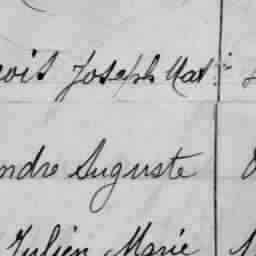 ois Joseph Mat
ndre Auguste
Julien Marie